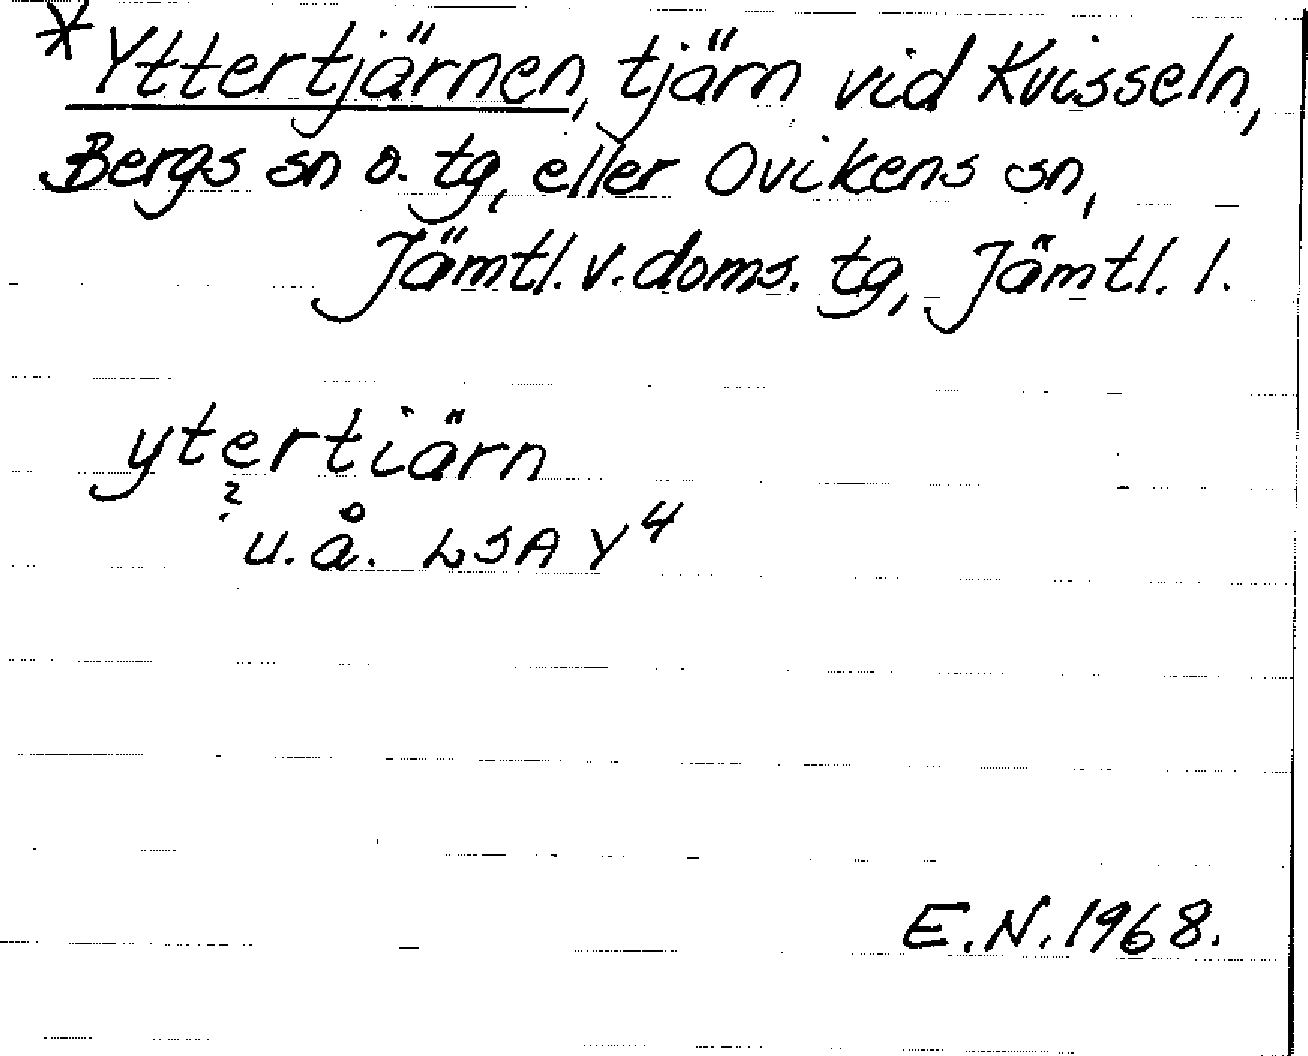 *Yttertjärnen, tjärn vid Kvisseln,
Bergs sn o. tg, eller Ovikens sn,
Jämtl. v. doms. tg, Jämtl. l.
ytertiärn
?
u.å. LSA Y4
E.N. 1968.